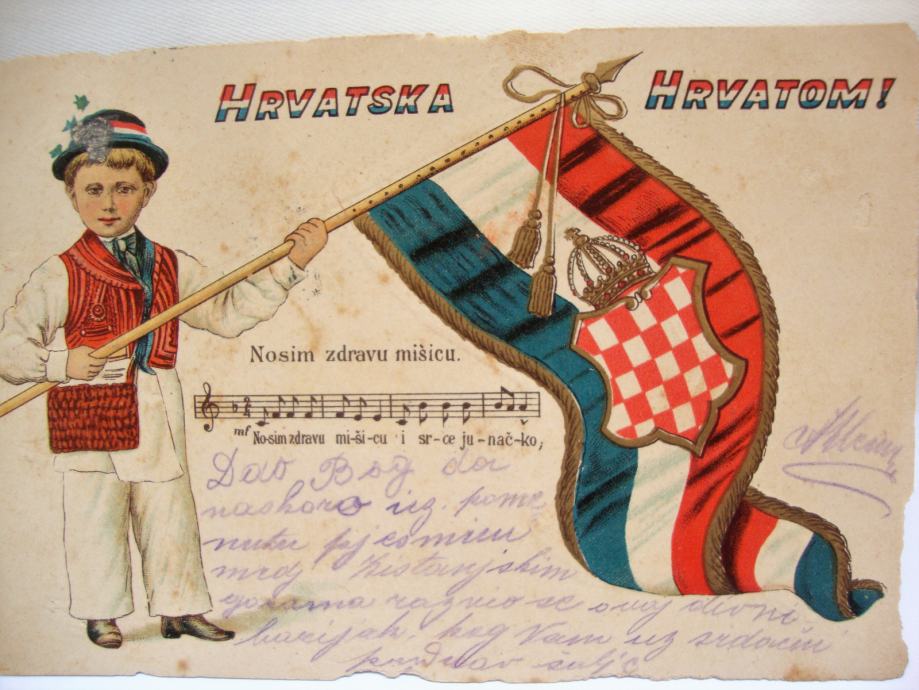 HRVATSKA HRVATOM!
Nosim zdravu mišicu.
mf No-sim zdravu mi-ši-cu i sr-ce ju-nač-ko,
Dao Bog da
naskoro uz
pjesmicu
med
gorama razvio se ovaj divni
barjak, kog Vam uz srdačni
pozdrav šalje